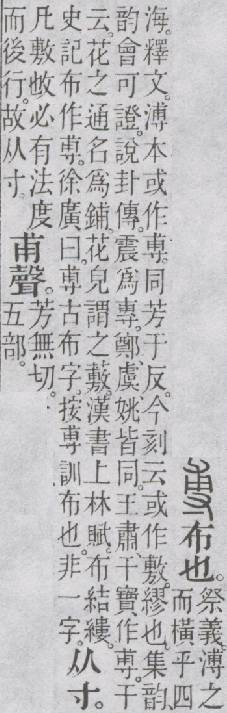 尃布也。祭義。溥之
而橫乎四
海。釋文。溥本或作尃。同芳于反。今刻云或作敷。繆也。集韵、
韵會可證。說卦傳。震爲專。鄭、虞、姚皆同。王肅、干寶作尃。干
云。花之通名爲鋪。花皃謂之蘛。漢書上林賦。布結縷。
史記布作尃。徐廣曰。尃古布字。按尃訓布也。非一字。从寸。
凡敷必有法度
而後行。故从寸。甫聲。芳無切。
五部。